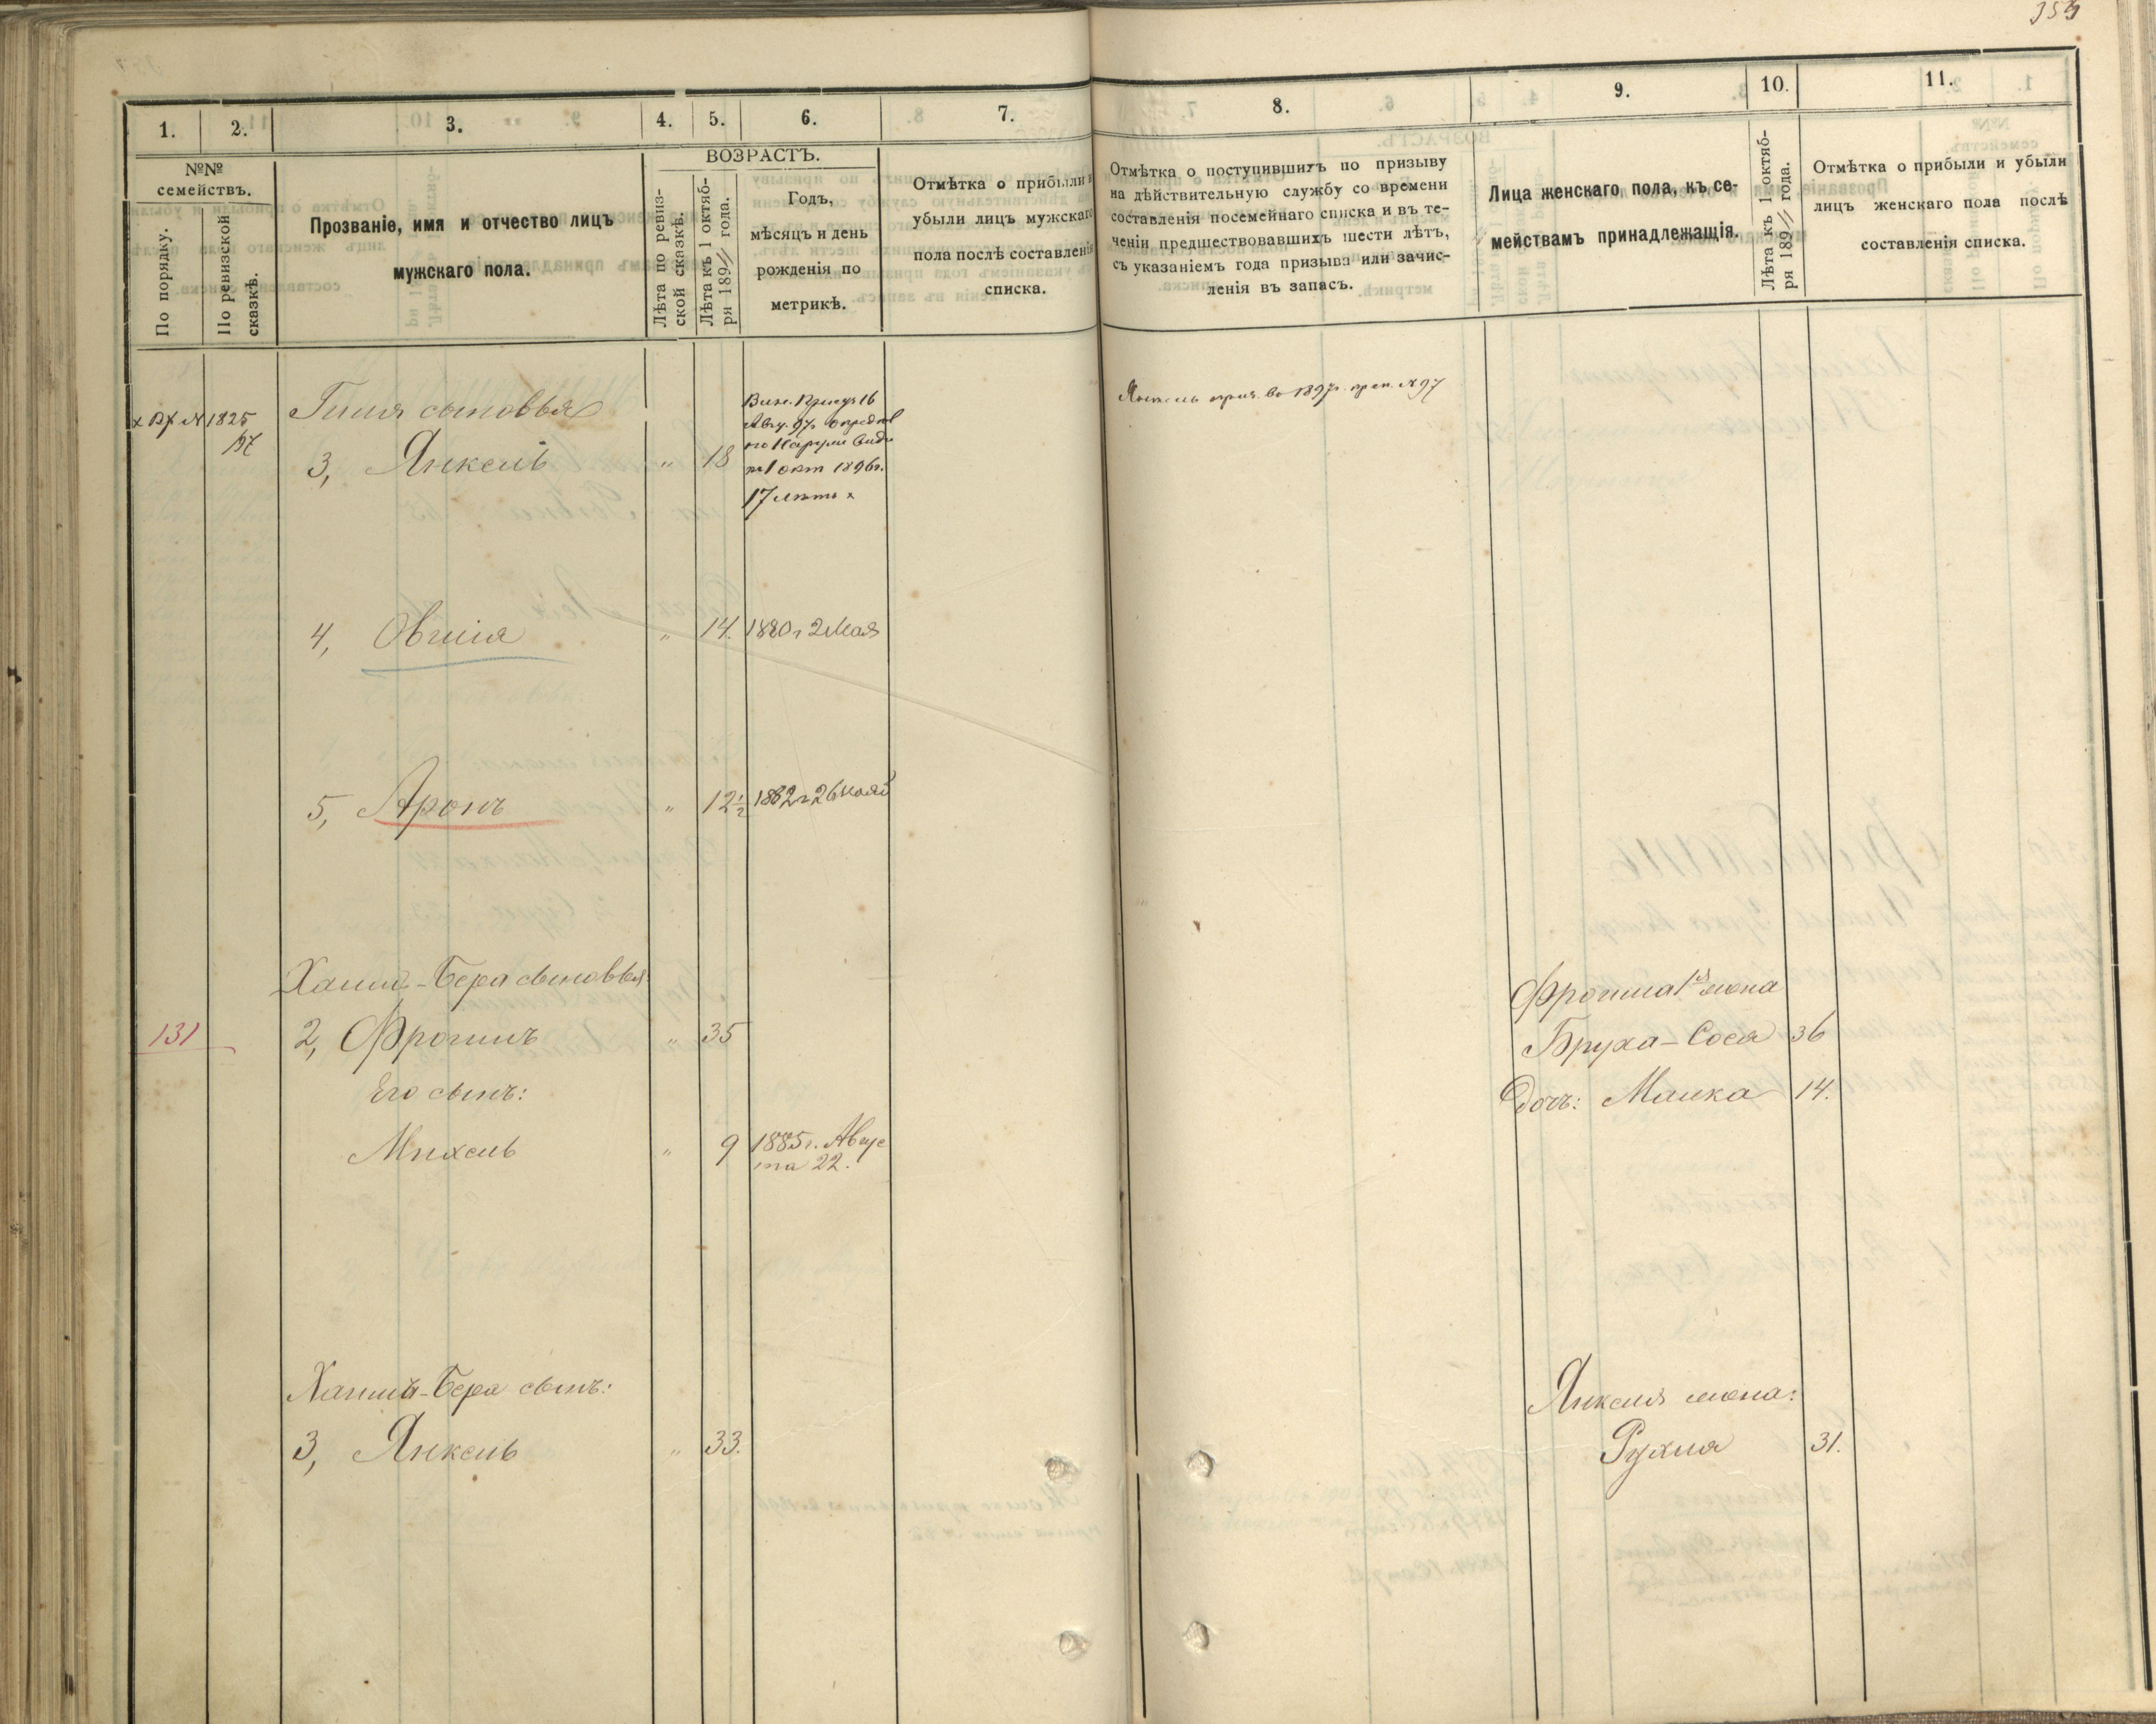 353
1. 2. 3. 4. 5. 6. 7. 8. 9. 10. 11.
№№
семействъ.
По порядку.
По ревизской
сказкѣ.
Прозваніе, имя и отчество лицъ
мужскаго пола.
ВОЗРАСТЪ.
Лѣта по ревиз-
ской сказкѣ.
Лѣта къ 1 октяб-
ря 1894 года.
Годъ,
мѣсяцъ и день
рожденія по
метрикѣ.
Отмѣтка о прибыли и
убыли лицъ мужскаго
пола послѣ составленія
списка.
Отмѣтка о поступившихъ по призыву
на дѣйствительную службу со времени
составленія посемейнаго списка и въ те-
ченіи предшествовавшихъ шести лѣтъ,
съ указаніемъ года призыва или зачис-
ленія въ запасъ.
Лица женскаго пола, къ се-
мействамъ принадлежащія.
Лѣта къ 1 октяб-
ря 1894 года.
Отмѣтка о прибыли и убыли
лицъ женскаго пола послѣ
составленія списка.
х Вх № 1825
97
сыновья
3, Янкель " 18
16
Авг. 97г. опредѣл
по наружн виду
на 1 окт 1896г.
17 лѣтъ х
Янкель во 1897г. № 97
4, Овшія " 14. 1880 г 2 Мая
5, Аронъ " 12½ 1882 г 26 маяй
Хаима-Бера сыновья:
131 2, Фроимъ " 35
Его сынъ:
Михель " 9 1885 г. Авгус
та 22.
Фроима 1я жена
Бруха-Сося 36
Дочь: Малка 14.
Хаима-Бера сынъ:
3, Янкель " 33.
Янкеля жена:
Рухля 31.